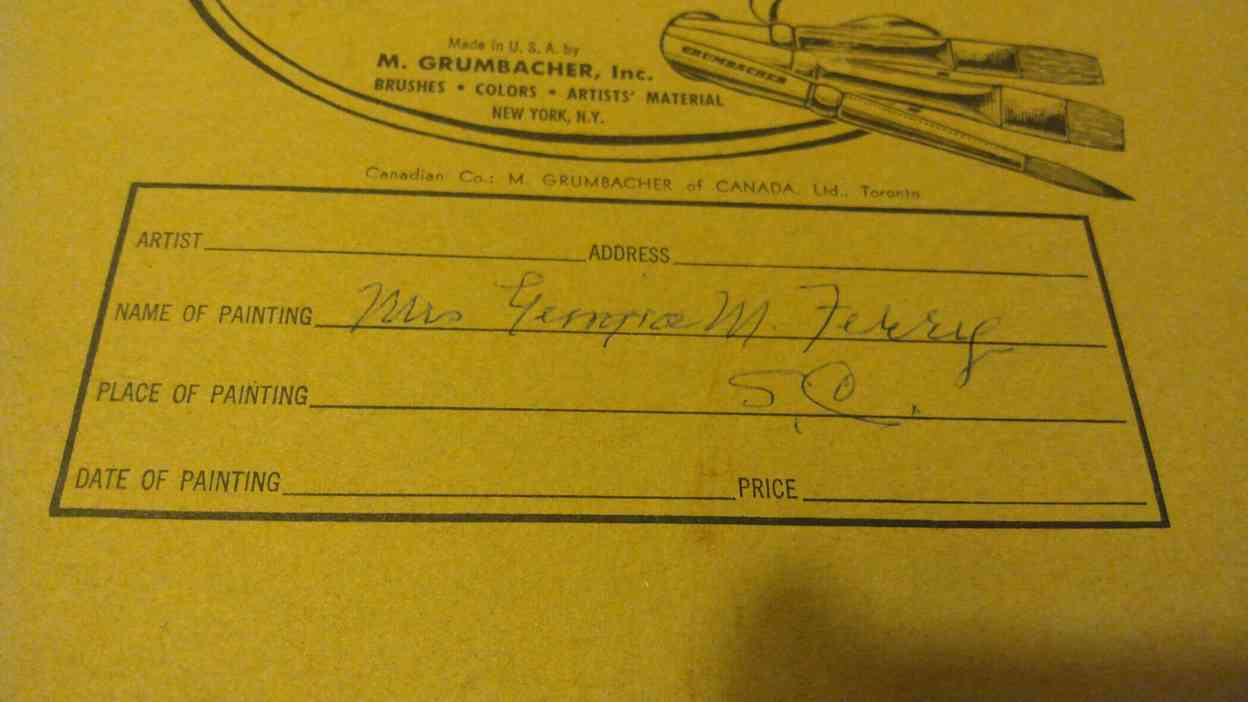 Made in U. S. A. by
M. GRUMBACHER, Inc.
BRUSHES • COLORS • ARTISTS' MATERIAL
NEW YORK, N.Y.
GRUMBACHER
Canadian Co.: M. GRUMBACHER of CANADA, Ltd., Toronto
ARTIST ADDRESS
NAME OF PAINTING Mrs Georgia M. Ferry
PLACE OF PAINTING S.C.
DATE OF PAINTING PRICE